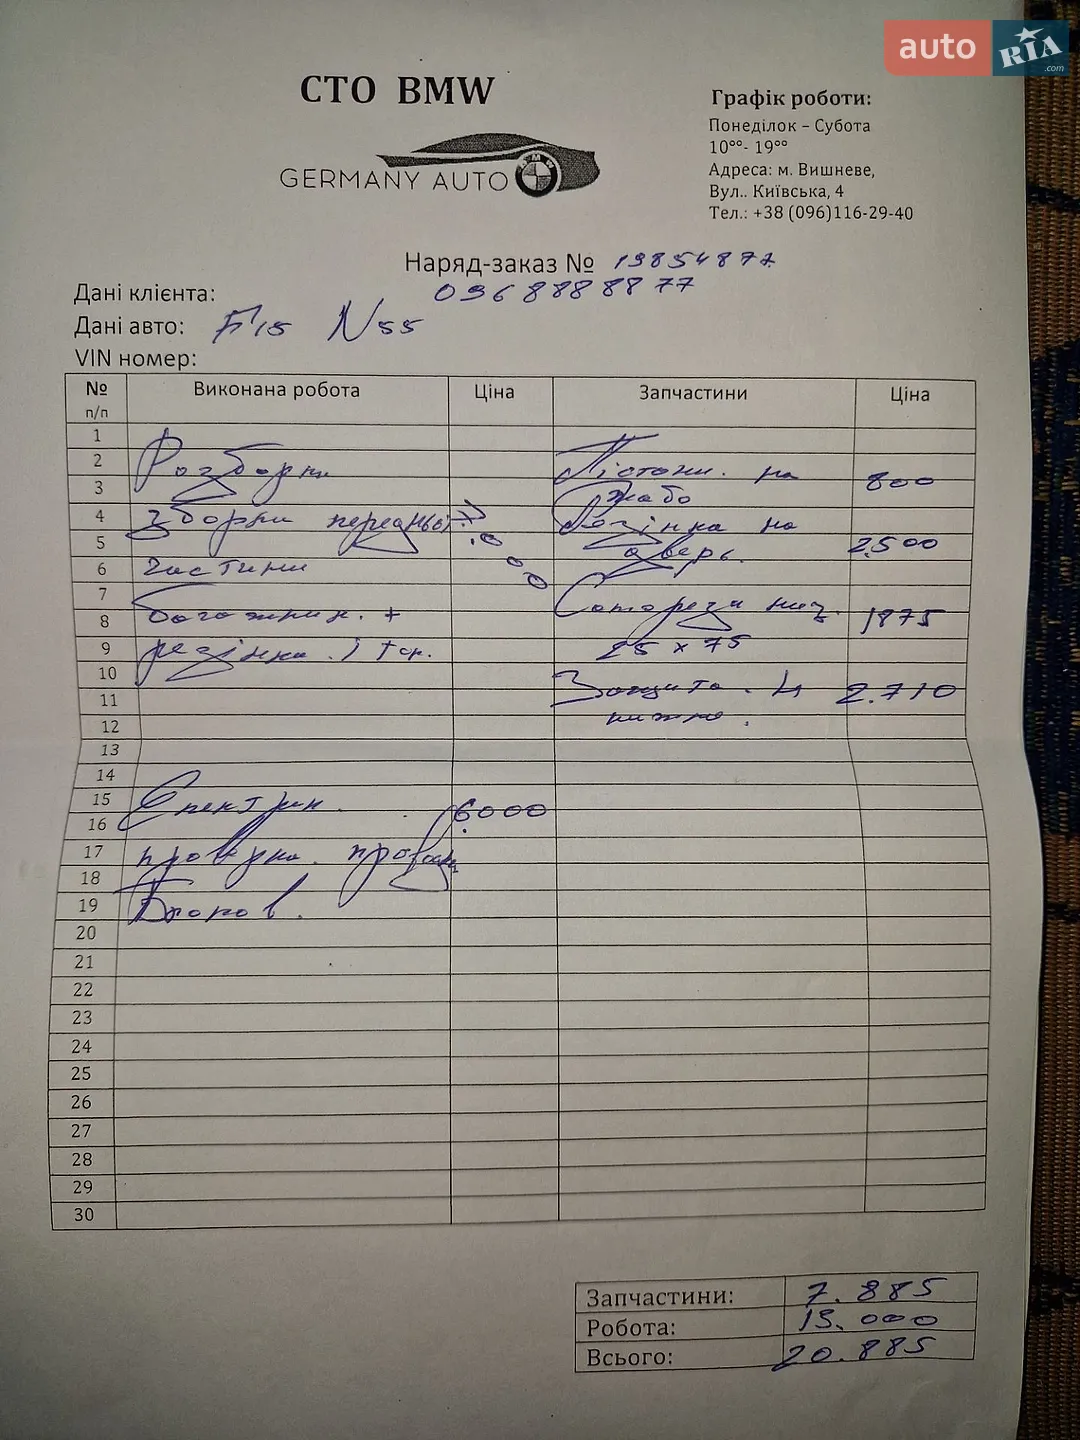 auto RIA.com
СТО BMW
GERMANY AUTO BMW
Графік роботи:
Понеділок – Субота
10°°- 19°°
Адреса: м. Вишневе,
Вул.. Київська, 4
Тел.: +38 (096)116-29-40
Наряд-заказ № 19854877
Дані клієнта: 0968888877
Дані авто: F15 N55
VIN номер:
№ п/п Виконана робота Ціна Запчастини Ціна
1
2 Розборка Пістони на 800
3 жабо
4 зборка передньої 7.000 Резінка на
5 дверь. 2500
6 частини
7 Саморези низ.
8 багажник. + 1875
9 резінка. і тор. 25 x 75
10 Защита. 4 2.710
11 нижня.
12
13
14
15 Електрик. 6000
16
17 провірка. проводки
18
19 Блоков.
20
21
22
23
24
25
26
27
28
29
30
Запчастини: 7.885
Робота: 13.000
Всього: 20.885